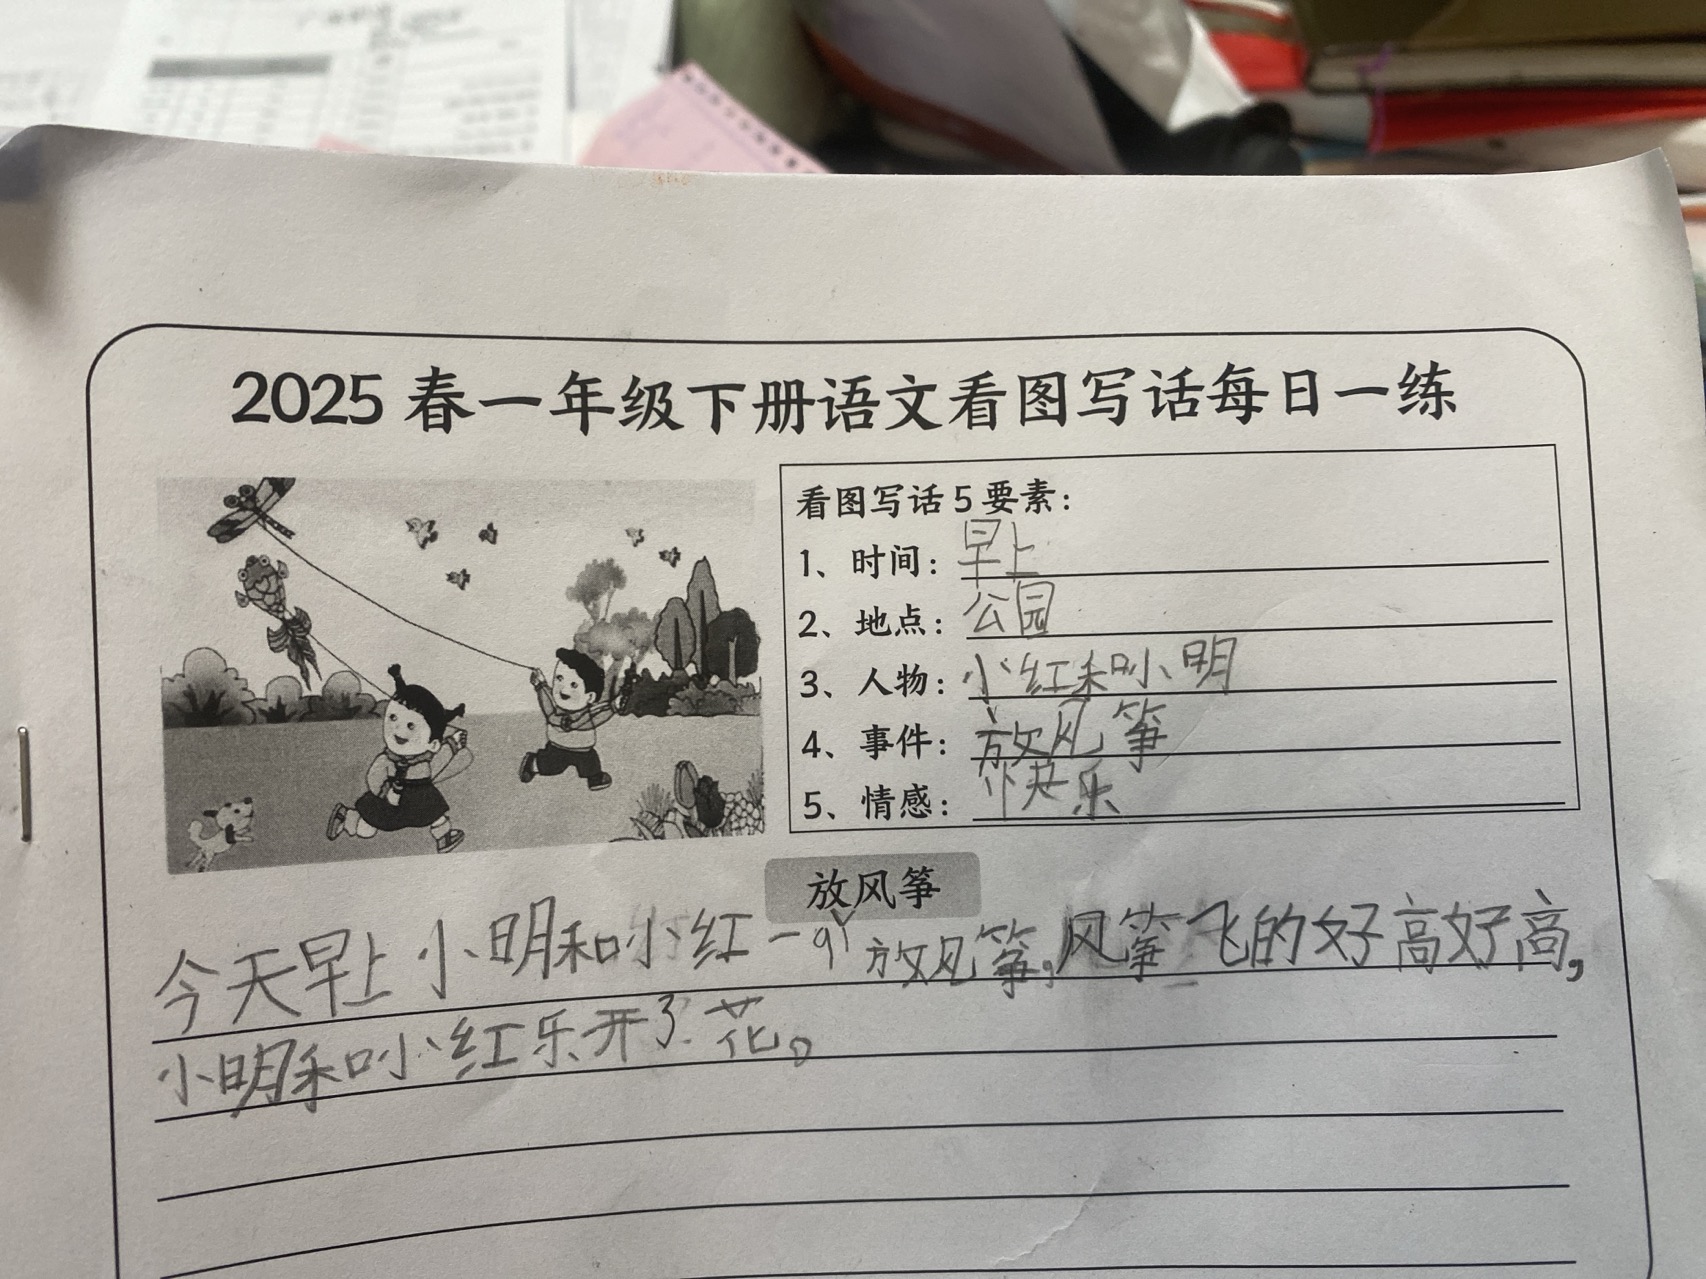 2025 春一年级下册语文看图写话每日一练
看图写话 5 要素：
1、时间：早上
2、地点：公园
3、人物：小红和小明
4、事件：放风筝
5、情感：快乐
放风筝
今天早上小明和小红一qǐ放风筝，风筝飞的好高好高，
小明和小红乐开了花。